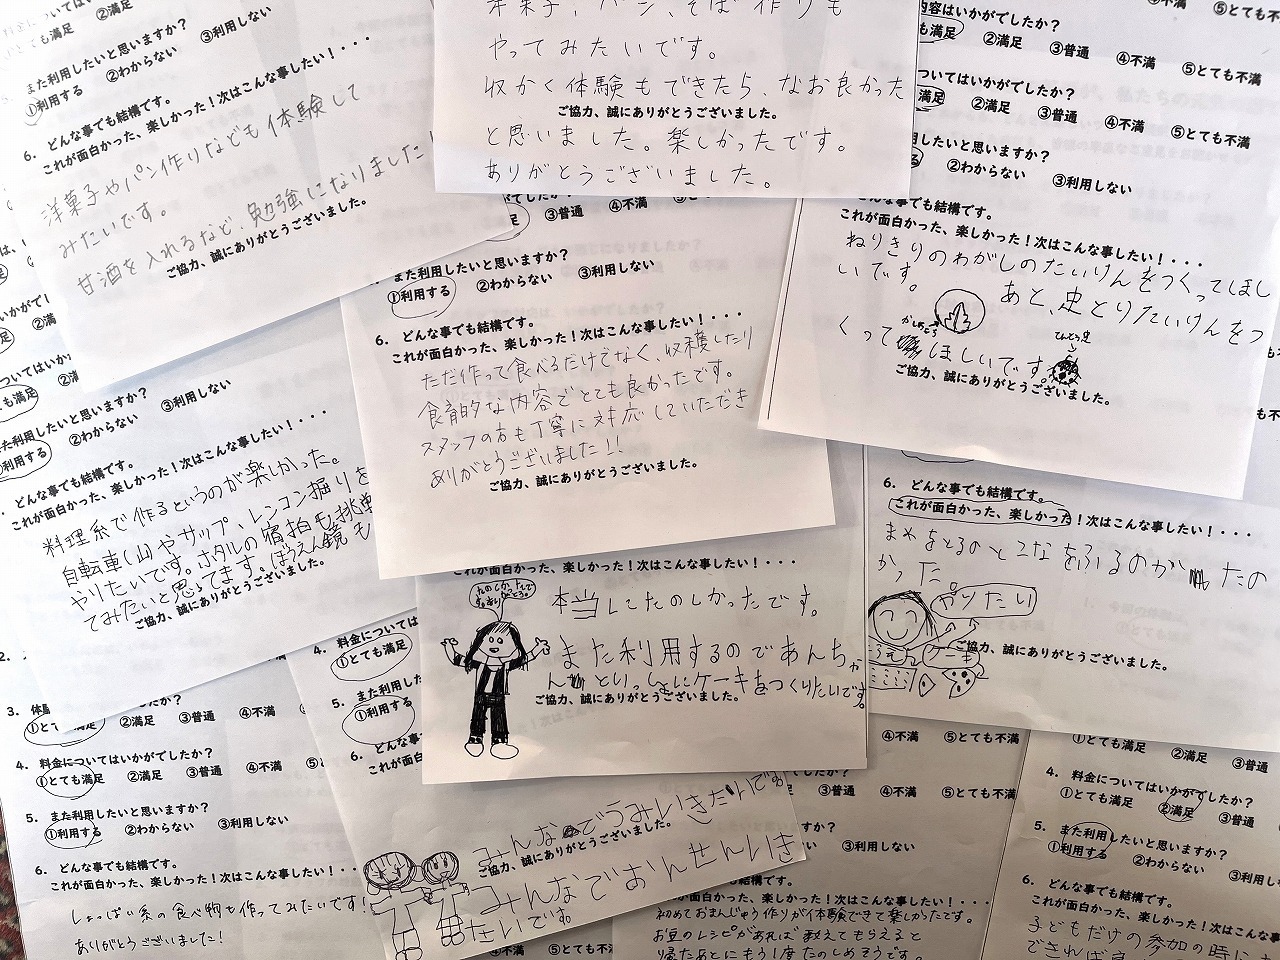 ②満足
また利用したいと思いますか？
①利用する ②わからない ③利用しない
6. どんな事でも結構です。
これが面白かった、楽しかった！次はこんな事したい！・・・
洋菓子やパン作りなども体験して
みたいです。
甘酒を入れるなど、勉強になりました
ご協力、誠にありがとうございました。
やってみたいです。
収かく体験もできたら、なお良かった
ご協力、誠にありがとうございました。
と思いました。楽しかったです。
ありがとうございました。
内容はいかがでしたか？
②満足 ③普通 ④不満 ⑤とても不満
ついてはいかがでしたか？
満足 ②満足 ③普通 ④不満 ⑤とても不満
利用したいと思いますか？
②わからない ③利用しない
どんな事でも結構です。
これが面白かった、楽しかった！次はこんな事したい！・・・
ねりきりのわがしのたいけんをつくってほし
いです。
あと、虫とりたいけんをつ
くって ほしいです。
かしわもち
てんとう虫
ご協力、誠にありがとうございました。
③普通 ④不満
また利用したいと思いますか？
①利用する ②わからない ③利用しない
6. どんな事でも結構です。
これが面白かった、楽しかった！次はこんな事したい！・・・
ただ作って食べるだけでなく、収穫したり
食育的な内容でとても良かったです。
スタッフの方も丁寧に対応していただき
ありがとうございました！！
ご協力、誠にありがとうございました。
ついてはいかがでしたか？
とても満足
また利用したいと思いますか？
①利用する ②わからない ③利用しない
どんな事でも結構です。
これが面白かった、楽しかった！次はこんな事したい！・・・
料理系で作るというのが楽しかった。
自転車(山)やサップ、レンコン掘りを
やりたいです。ホタルの宿泊も挑戦
てみたいと思ってます。ぼうえん鏡も
ご協力、誠にありがとうございました。
6. どんな事でも結構です。
これが面白かった、楽しかった！次はこんな事したい！・・・
まめをとるのとこなをふるのが たの
かった。
やりたい
ケーキ
ご協力、誠にありがとうございました。
これが面白かった、楽しかった！次はこんな事したい！・・・
本当にたのしかったです。
また利用するのであんちゃ
んといっしょにケーキをつくりたいです。
ご協力、誠にありがとうございました。
3. 体
②満足 ③普通 ④不満
4. 料金についてはいかがでしたか？
①とても満足 ②満足 ③普通 ④不満
5. また利用したいと思いますか？
①利用する ②わからない ③利用しない
6. どんな事でも結構です。
これが面白かった、楽しかった！次はこんな事したい！・・・
しょっぱい系の食べ物も作ってみたいです！
ありがとうございました！
4. 料金については
①とても満足
5. また利用した
①利用する
6. どんな事でも
これが面白
みんなでうみいきたいです
ご協力、誠にありがとうございました。
みんなでおんせんいき
たいです
④不満 ⑤とても不満
④不満 ⑤とても不満
③利用しない
面白かった、楽しかった！次はこんな事したい！・・・
初めておまんじゅう作りが体験できて楽しかったです。
お豆のレシピがあれば教えてもらえると
帰ったあとにもう1度たのしめそうです。
②満足 ③普通
4. 料金についてはいかがでしたか？
①とても満足 ②満足 ③普通
5. また利用したいと思いますか？
①利用する ②わからない ③利用しな
6. どんな事でも結構です。
これが面白かった、楽しかった！次はこんな
子どもだけの参加の時に
できれば